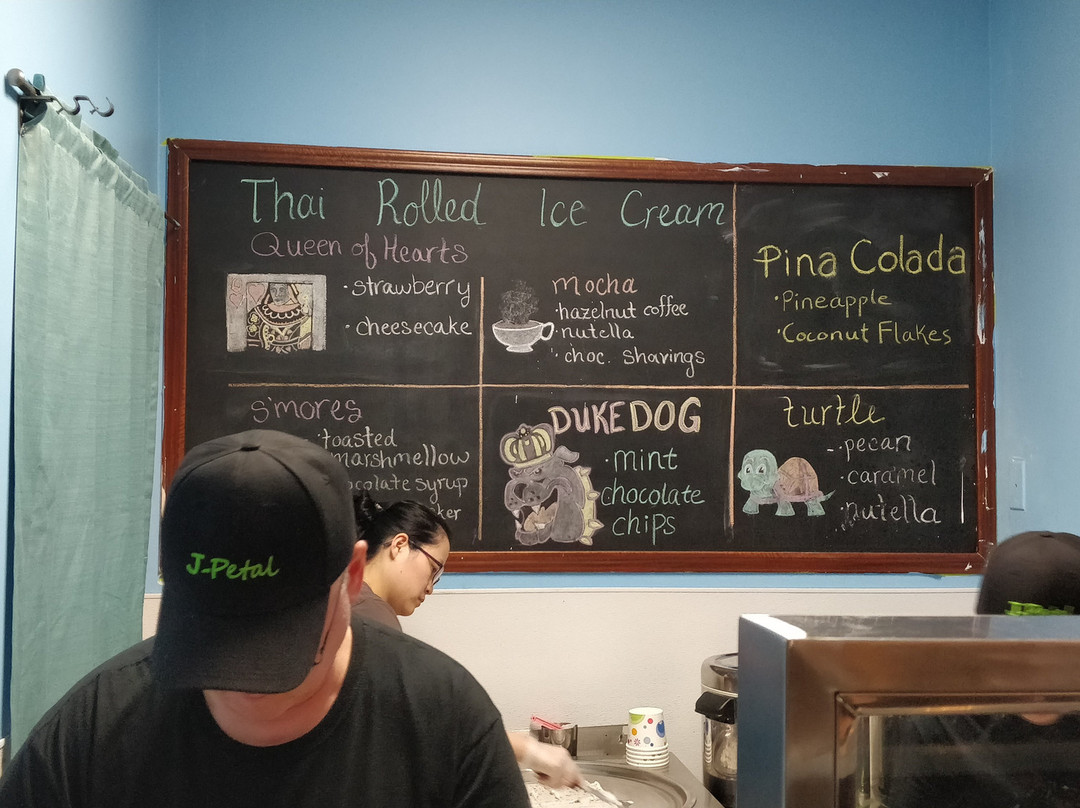 Thai Rolled Ice Cream
Queen of Hearts
·strawberry
·cheesecake
mocha
·hazelnut coffee
·nutella
·choc. shavings
Pina Colada
·Pineapple
·Coconut Flakes
s'mores
·toasted
marshmellow
syrup
DUKEDOG
·mint
chocolate
chips
turtle
·pecan
·caramel
·nutella
J-Petal